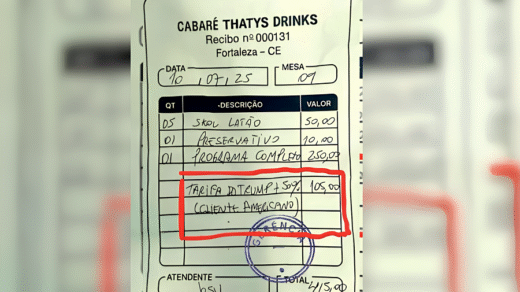 CABARÉ THATYS DRINKS
Recibo nº 000131
Fortaleza - CE
DATA MESA
10, 07, 25 09
QT -DESCRIÇÃO VALOR
05 SKOL LATÃO 50,00
01 PRESERVATIVO 10,00
01 PROGRAMA COMPLETO 250,00
TARIFA DO TRUMP + 50% 105,00
(CLIENTE AMERICANO)
GERENCIA
ATENDENTE TOTAL
415,00